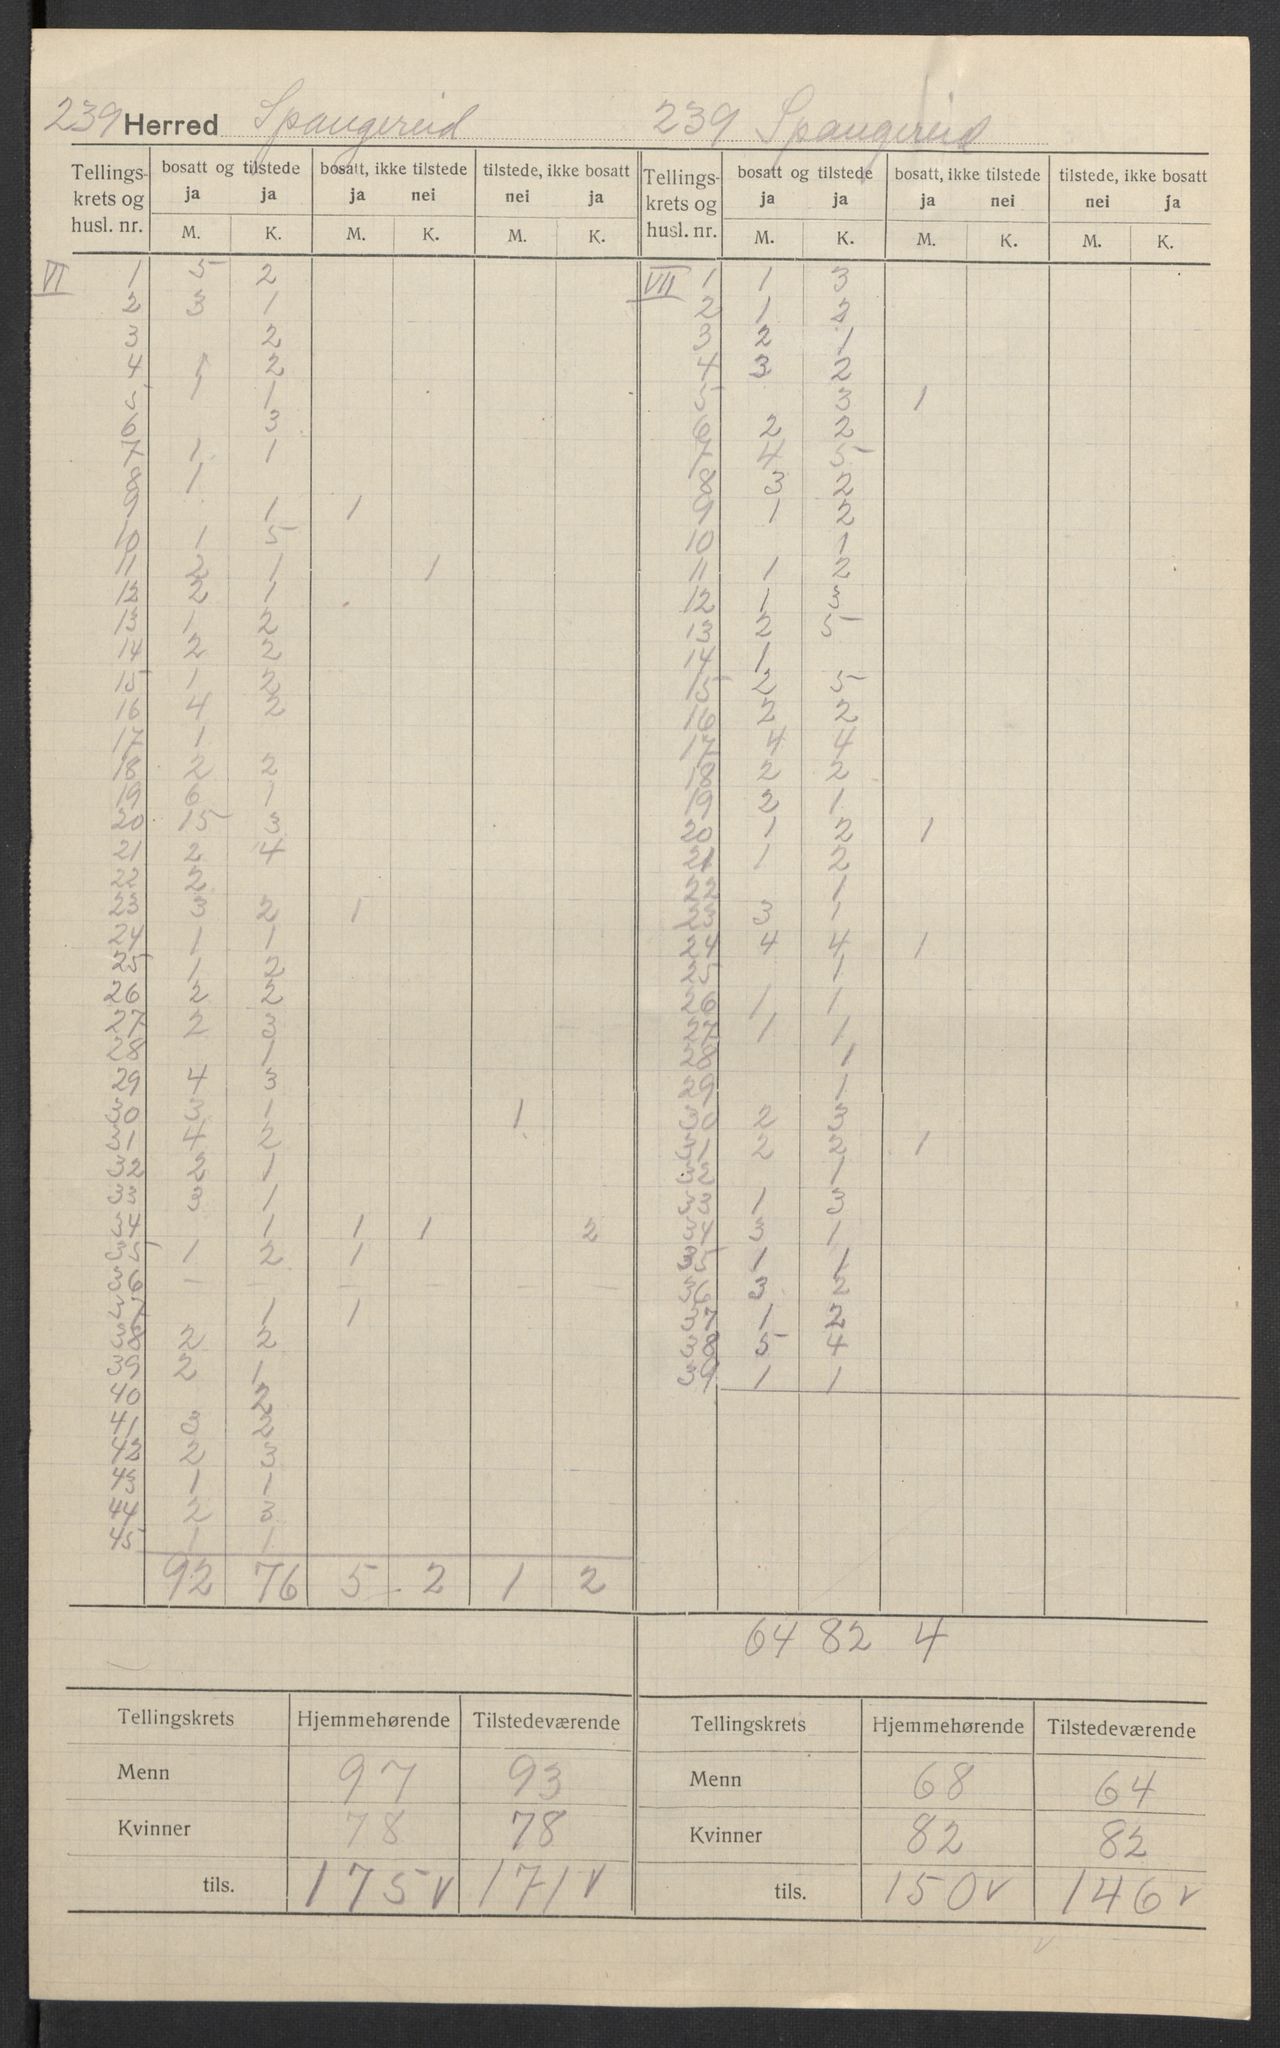 239 Herred Spangereid 239 Spangereid
Tellings- krets og husl. nr. | bosatt og tilstede ja ja | bosatt, ikke tilstede ja nei | tilstede, ikke bosatt nei ja | Tellings- krets og husl. nr. | bosatt og tilstede ja ja | bosatt, ikke tilstede ja nei | tilstede, ikke bosatt nei ja
M. K. M. K. M. K. M. K. M. K. M. K.
VI 1 5 2
2 3 1
3 2
4 1 2
5 1 1
6 3
7 1 1
8 1
9 1 1
10 1 5
11 2 1 1
12 2 1
13 1 2
14 2 2
15 1 2
16 4 2
17 1
18 2 2
19 6 1
20 15 3
21 2 4
22 2
23 3 2 1
24 1 1
25 1 2
26 2 2
27 2 3
28 1
29 4 3
30 3 1 1
31 4 2
32 2 1
33 3 1
34 1 1 1 2
35 1 2 1
36 – – – – – –
37 1 1
38 2 2
39 2 1
40 2
41 3 2
42 2 3
43 1 1
44 2 3
45 1 1
92 76 5 2 1 2
VII 1 1 3
2 1 2
3 2 1
4 3 2
5 3 1
6 2 2
7 4 5
8 3 2
9 1 2
10 1
11 1 2
12 1 3
13 2 5
14 1
15 2 5
16 2 2
17 4 4
18 2 2
19 2 1
20 1 2 1
21 1 2
22 1
23 3 1
24 4 4 1
25 1
26 1 1
27 1 1
28 1
29 1
30 2 3
31 2 2 1
32 1
33 1 3
34 3 1
35 1 1
36 3 2
37 1 2
38 5 4
39 1 1
64 82 4
Tellingskrets Hjemmehørende Tilstedeværende
Menn 97 93
Kvinner 78 78
tils. 175 v 171 v
Tellingskrets Hjemmehørende Tilstedeværende
Menn 68 64
Kvinner 82 82
tils. 150 v 146 v